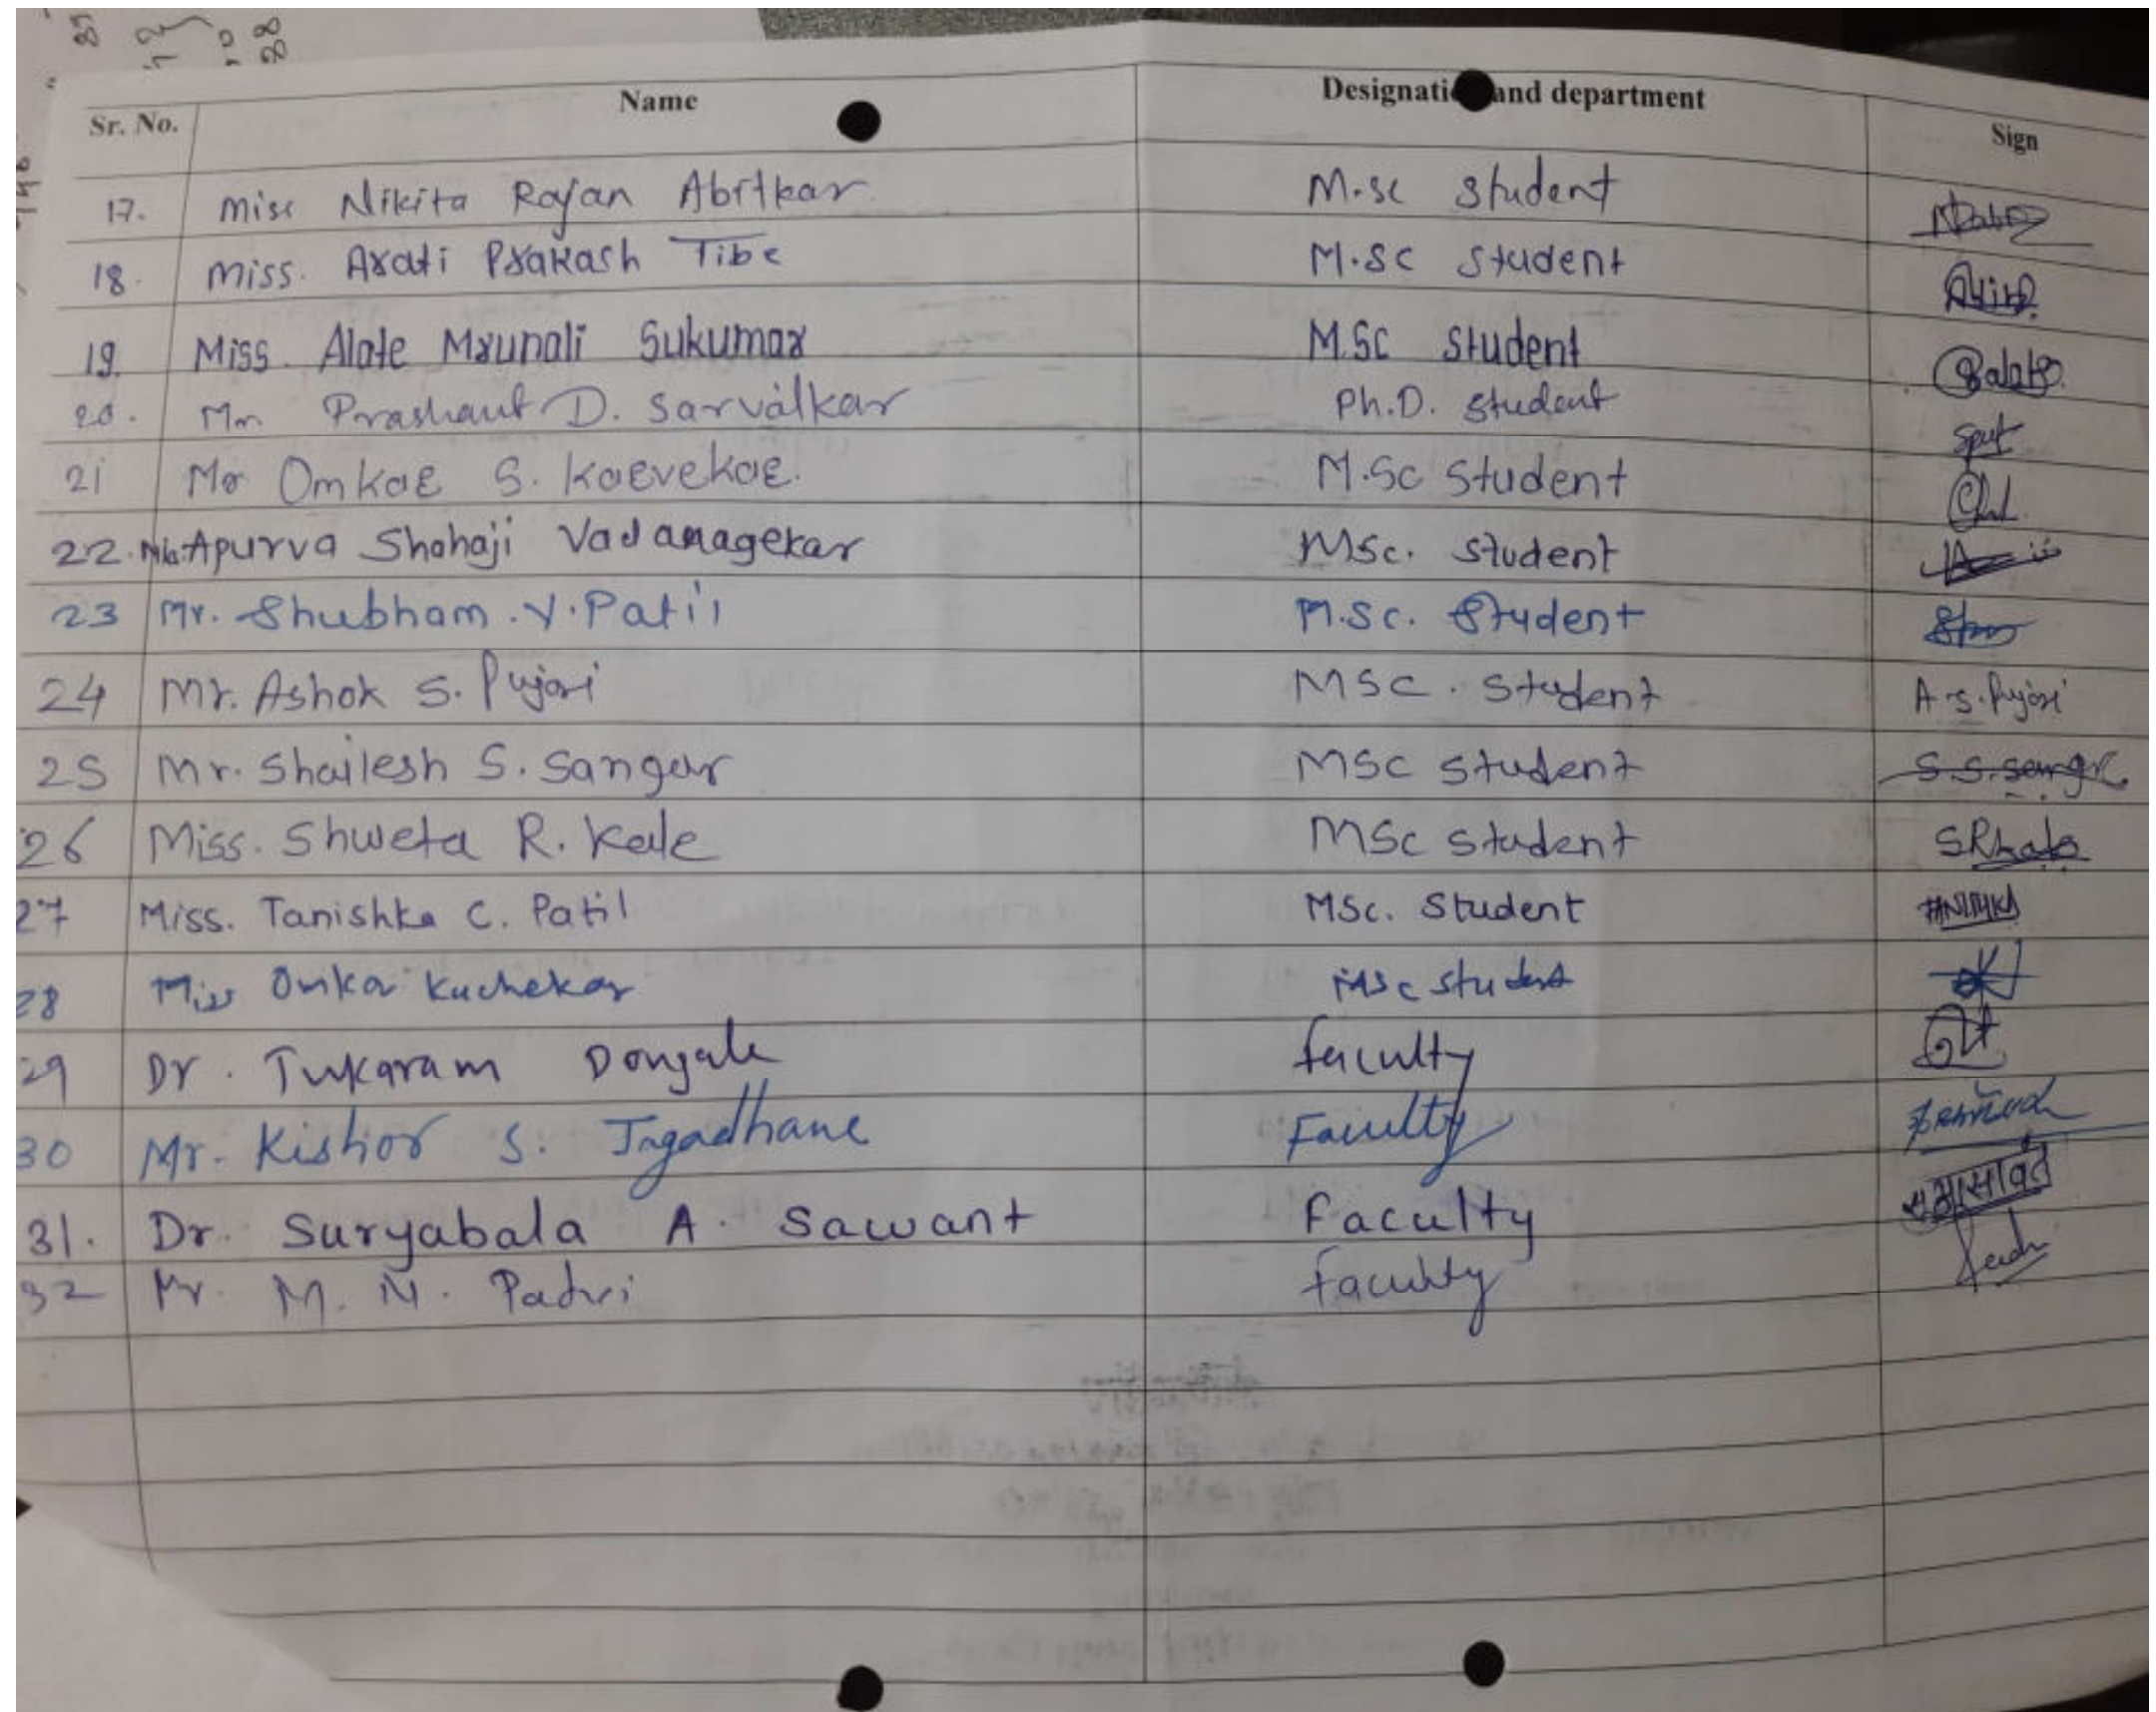 Sr. No. Name Designation and department Sign
17. Miss Nikita Rajan Abitkar M.sc student
18. Miss. Arati Prakash Tibe M.SC student
19. Miss. Alate Mrunali Sukumar M.SC Student
20. Mr. Prashant D. Sarvalkar Ph.D. student
21 Mr Omkar S. Karvekar. M.Sc Student
22. Apurva Shahaji Vadanagekar MSc. Student
23 Mr. Shubham .Y. Patil M.Sc. Student
24 Mr. Ashok S. Pujari MSC. Student A.S. Pujari
25 Mr. Shailesh S. Sangar MSC student S.S. Sangar
26 Miss. Shweta R. Kale MSc student SRkale
27 Miss. Tanishka C. Patil MSc. Student
28 Miss Kuchekar MSc student
29 Dr. Tukaram Dongale faculty
30 Mr. Kishor S. Jagadhane Faculty
31. Dr. Suryabala A. Sawant Faculty
32 Mr. M. N. Padvi faculty